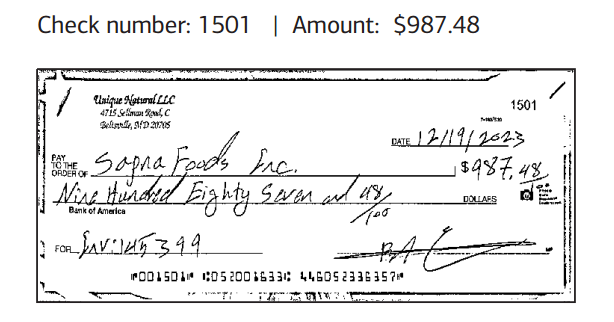 Check number: 1501 | Amount: $987.48
Unique Natural LLC
4715 Sellman Road, C
Beltsville, MD 20705
1501
DATE 12/19/2023
PAY TO THE ORDER OF Sapna Foods Inc. $987.48
Nine Hundred Eighty Seven and 48/100 DOLLARS
Bank of America
FOR Inv:145399
⑈001501⑈ ⑆052001633⑆ 446052336357⑈